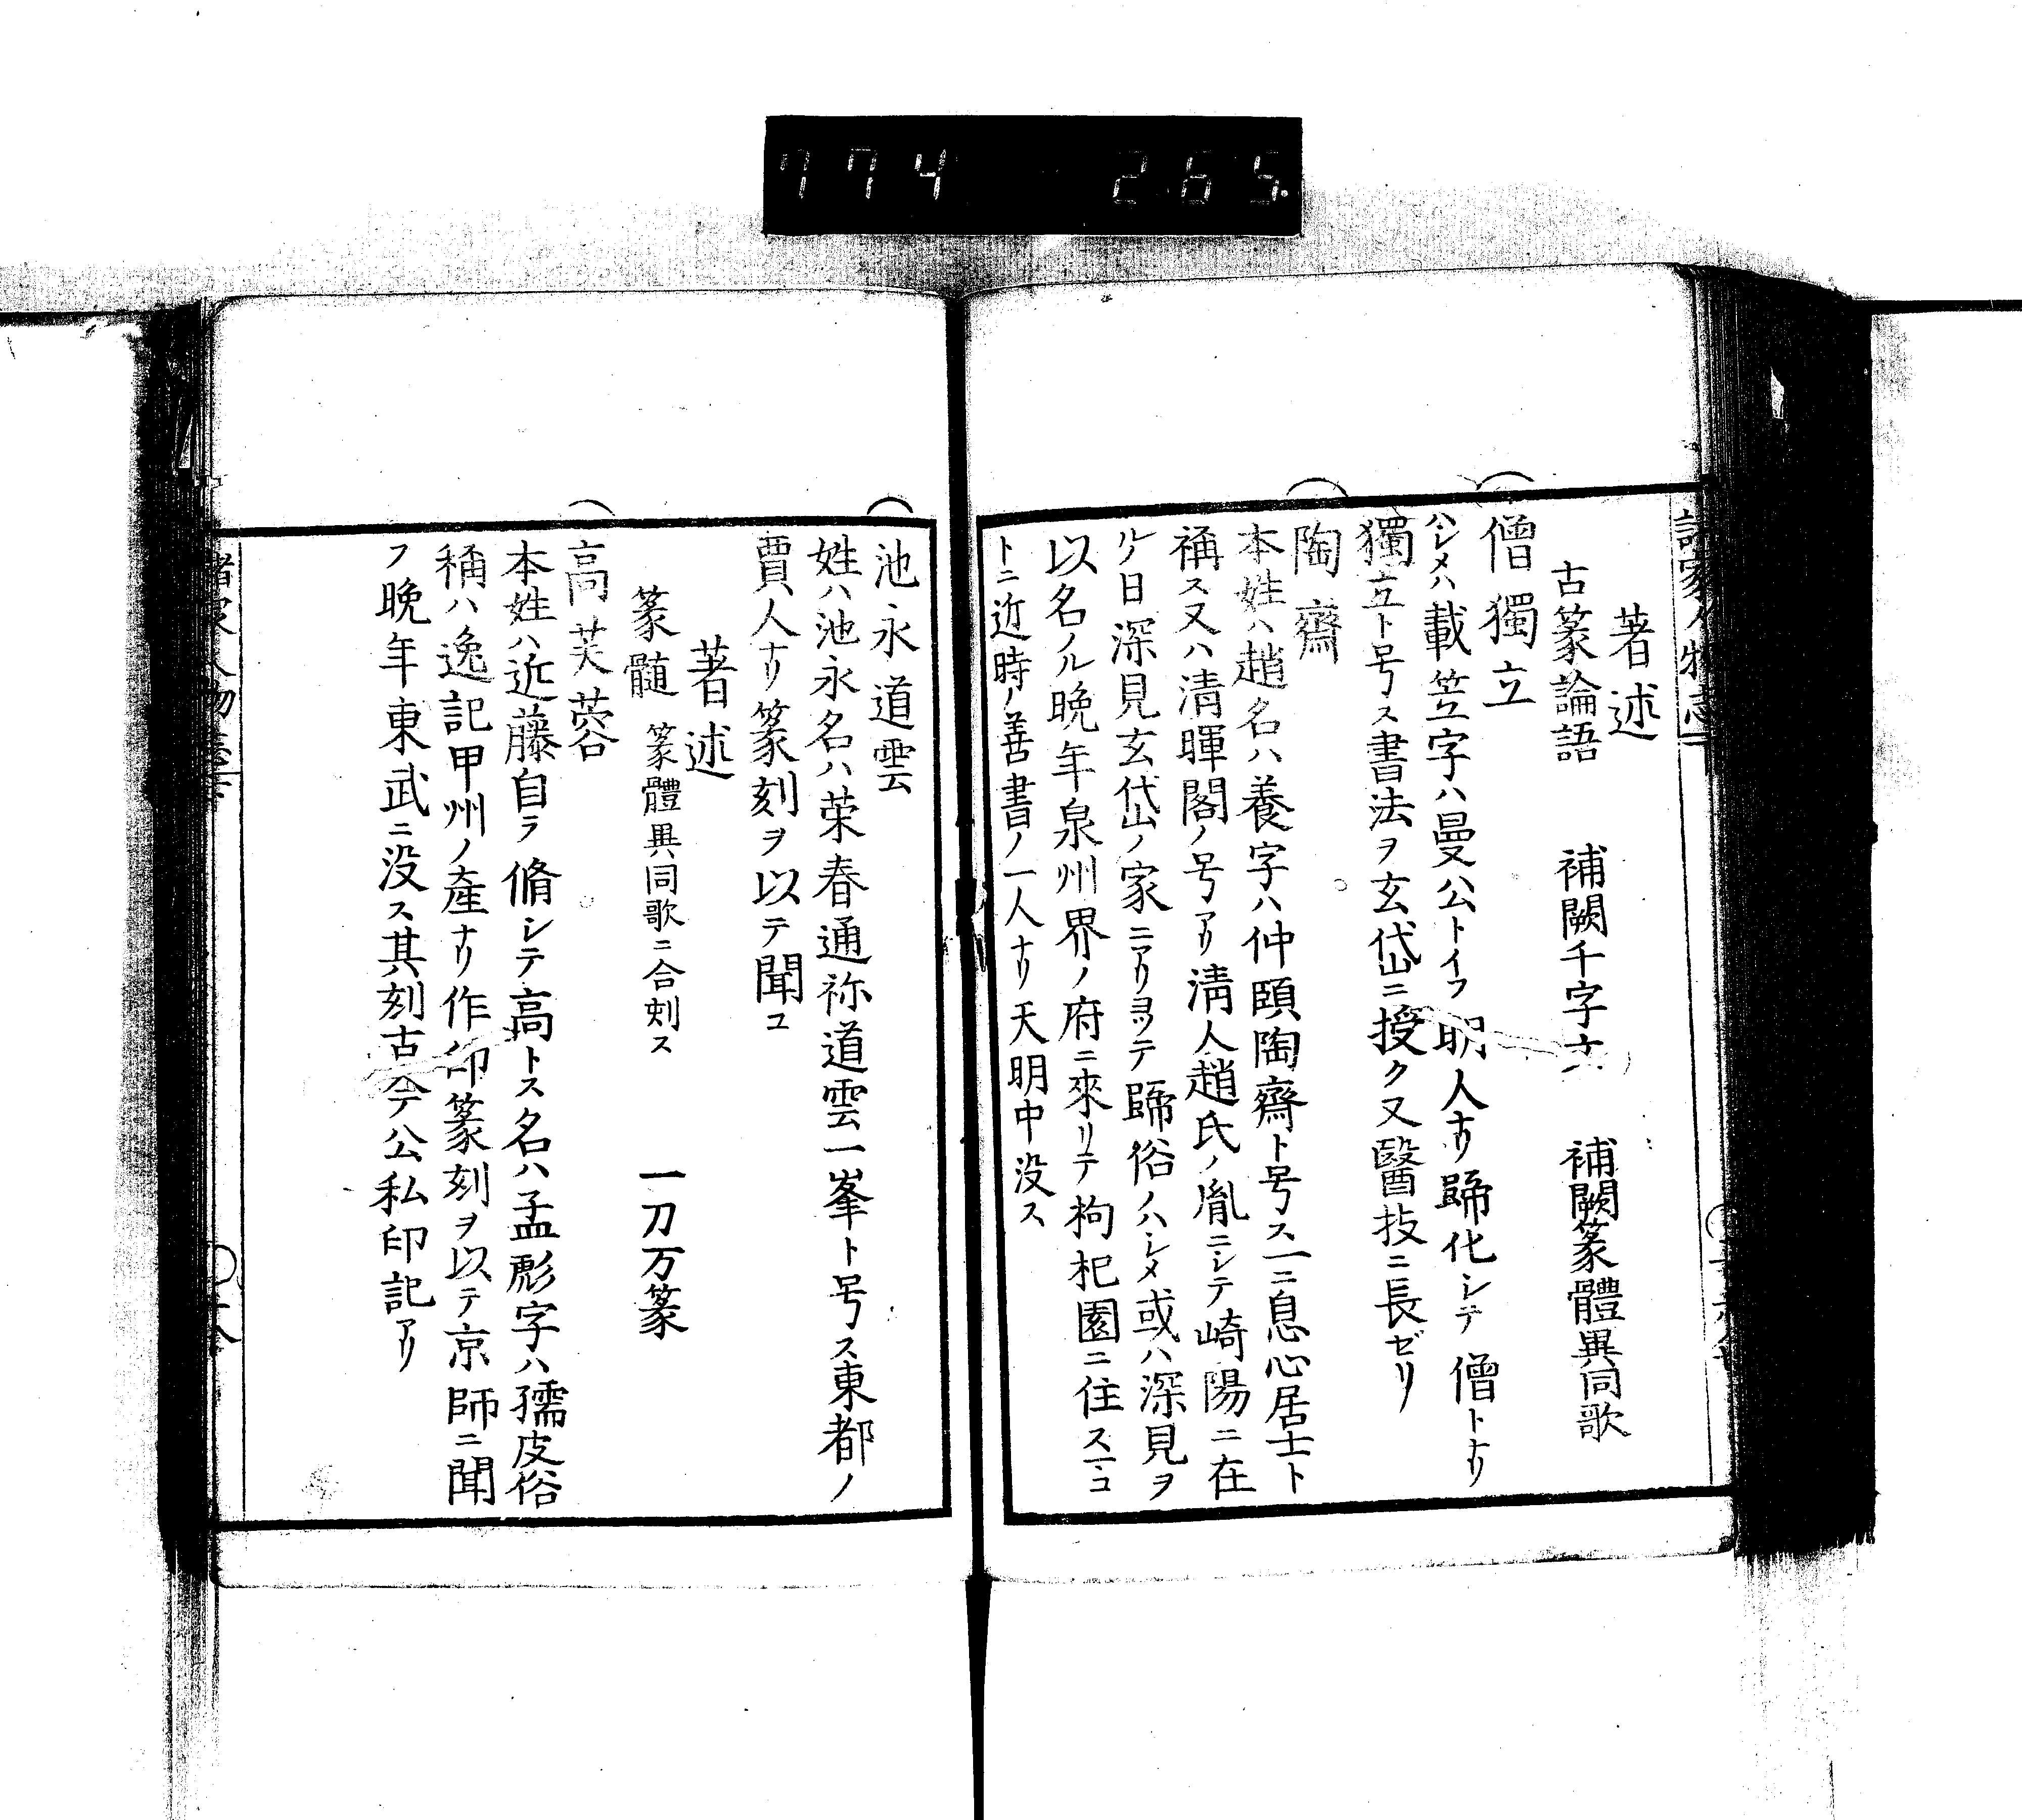 774 265
諸家人物志下
著述
古篆論語 補闕千字 補闕篆體異同歌
僧獨立
ハシメハ載笠字ハ曼公トイフ明人ナリ歸化シテ僧トナリ
獨立ト号ス書法ヲ玄岱ニ授ク又醫技ニ長ゼリ
陶齋
本姓ハ趙名ハ養字ハ仲頤陶齋ト号ス一ニ息心居士ト
稱ス又ハ清暉閣ノ号アリ淸人趙氏ノ胤ニシテ崎陽ニ在
ルノ日深見玄岱ノ家ニアリヨツテ歸俗ノハシメ或ハ深見ヲ
以名ノル晩年泉州界ノ府ニ來リテ枸杞園ニ住スニコ
トニ近時ノ善書ノ一人ナリ天明中没ス
池永道雲
姓ハ池永名ハ荣春通祢道雲一峯ト号ス東都ノ
賈人ナリ篆刻ヲ以テ聞ユ
著述
篆髄 篆體異同歌ニ合刻ス 一刀万篆
高芙蓉
本姓ハ近藤自ラ脩シテ高トス名ハ孟彪字ハ孺皮俗
稱ハ逸記甲州ノ產ナリ作印篆刻ヲ以テ京師ニ聞
フ晩年東武ニ没ス其刻古今公私印記アリ